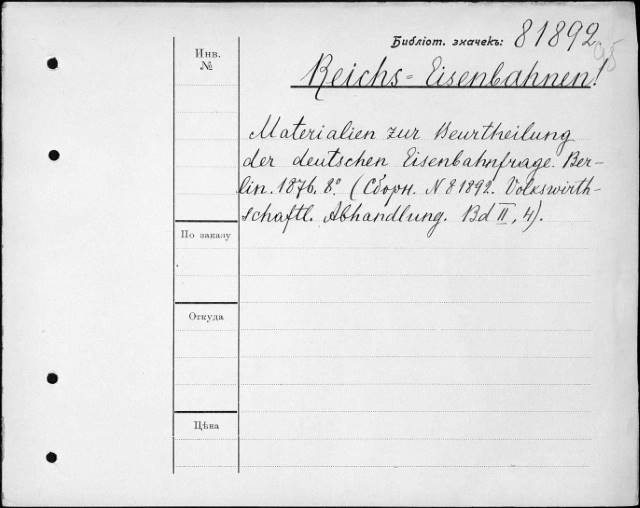 Библіот. значекъ: 81892
Инв.
№
Reichs=Eisenbahnen!
Materialien zur Beurtheilung
der deutschen Eisenbahnfrage. Ber-
lin. 1876. 8º (Сборн. N 81892. Volkswirth-
schaftl. Abhandlung. Bd II, 4).
По заказу
Откуда
Цѣна